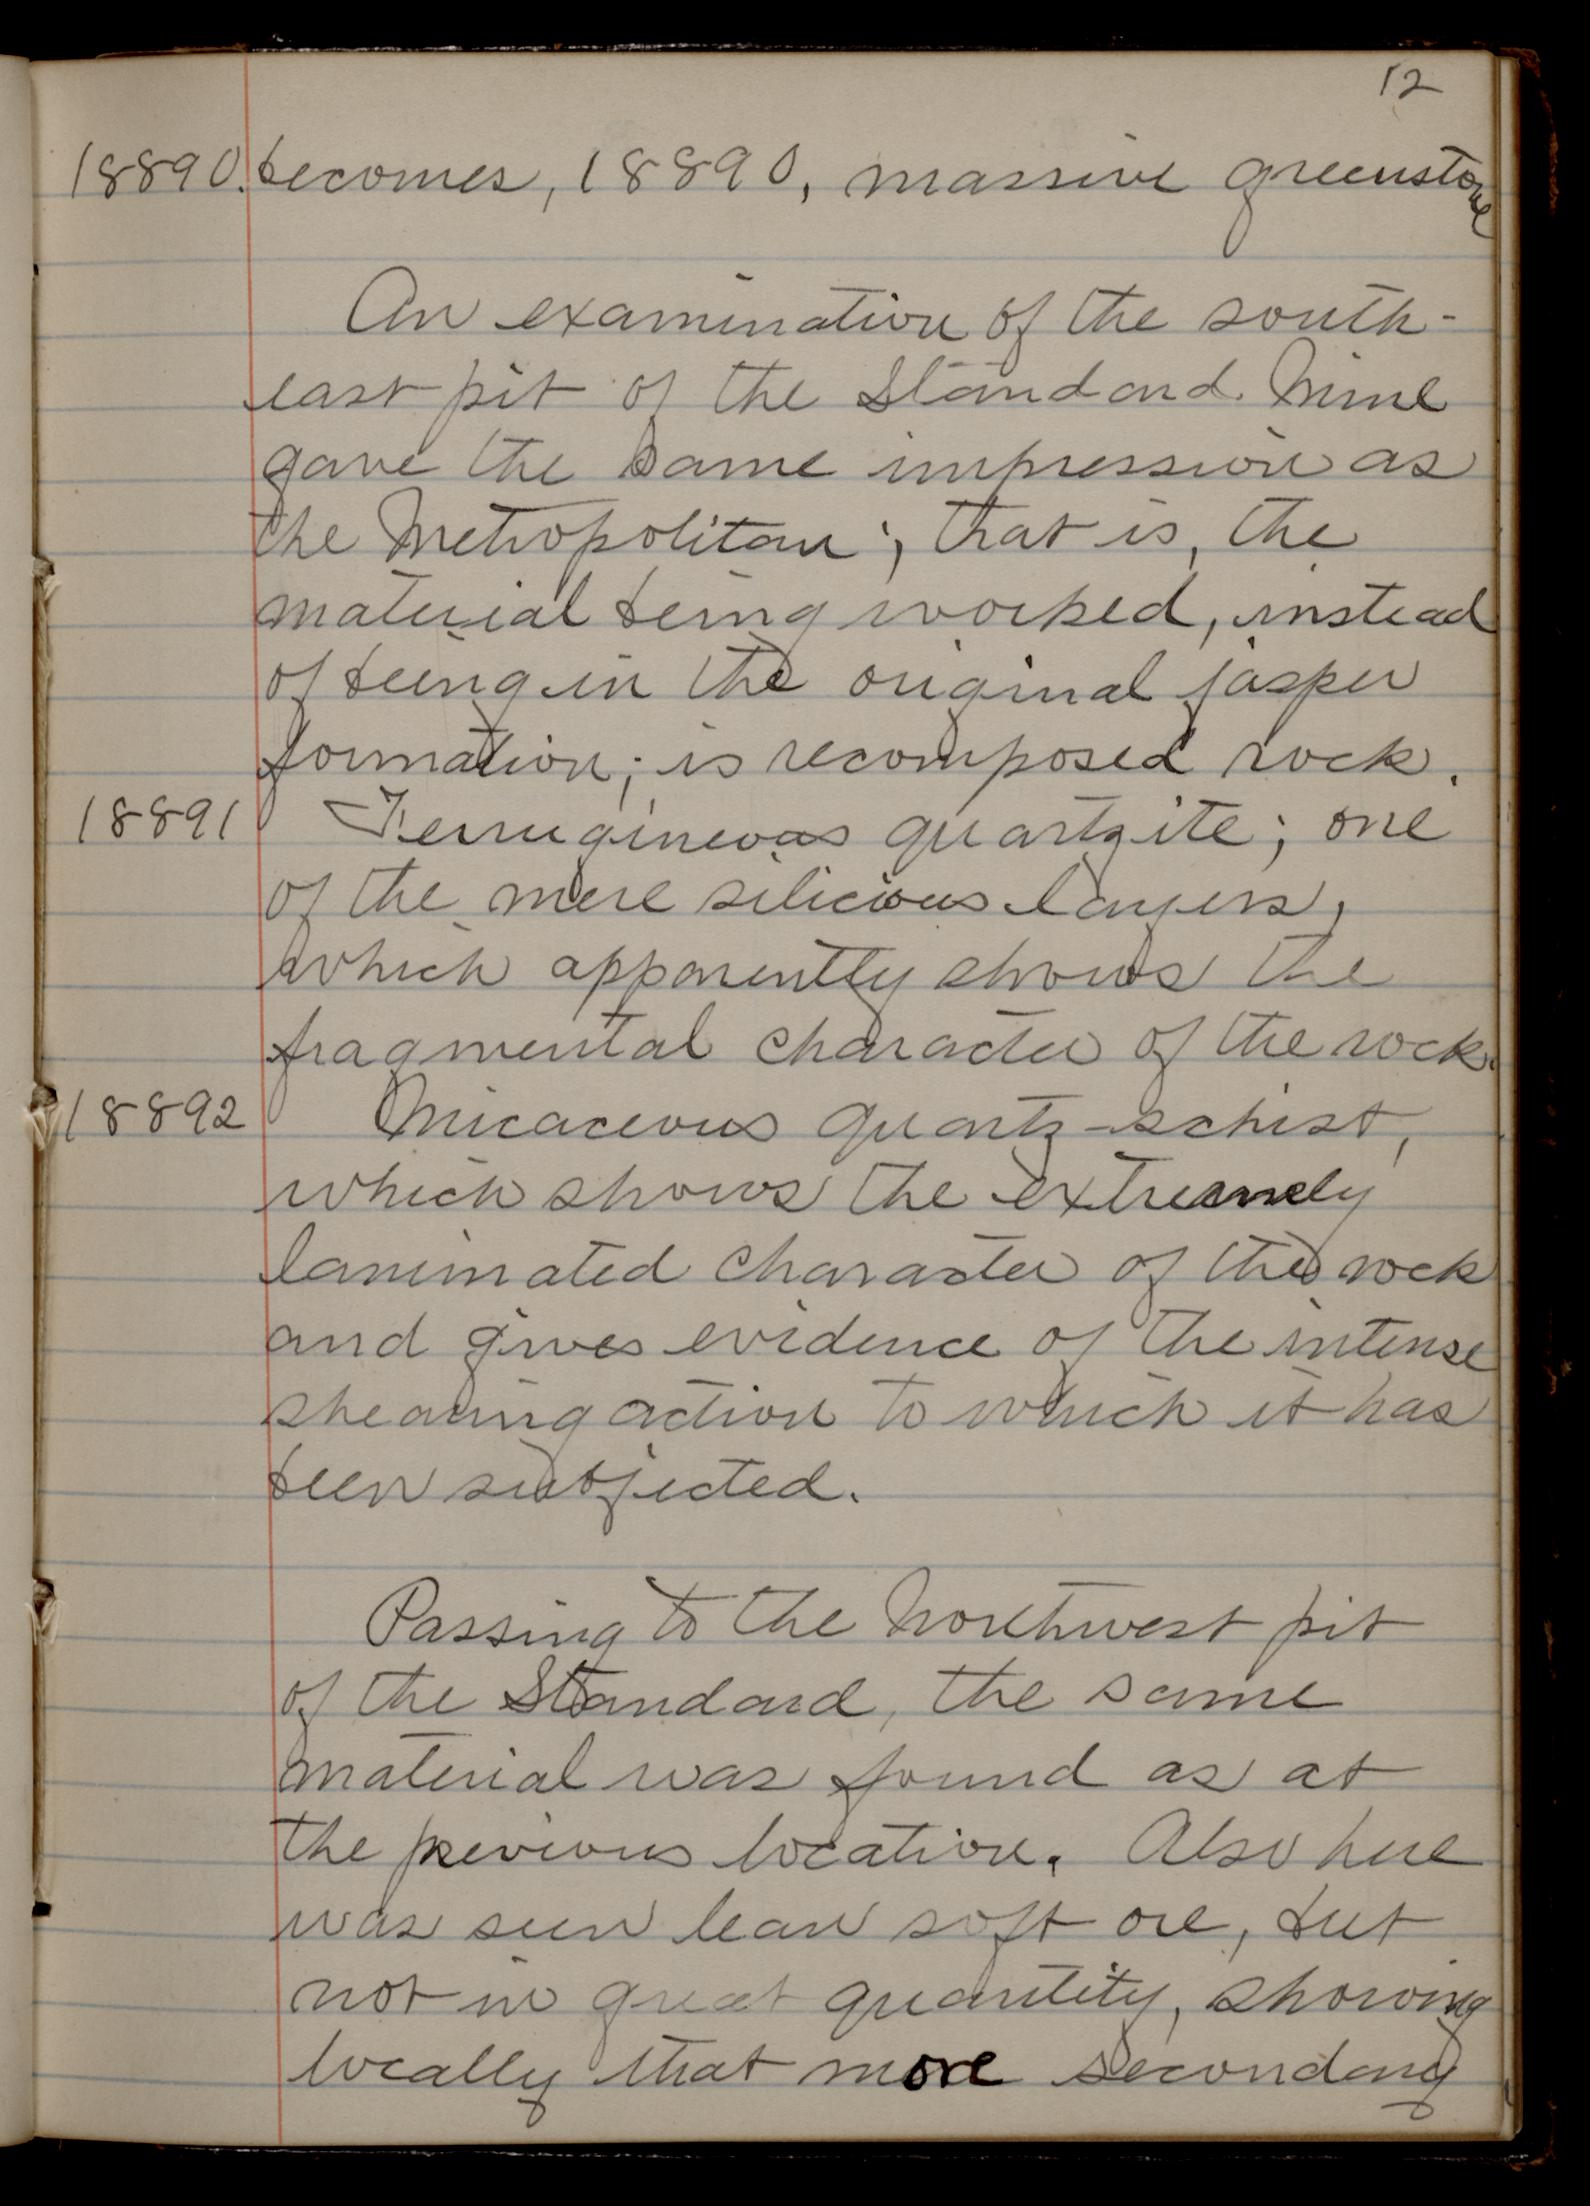 12
18890. becomes, 18890, massive greenstone
An examination of the south-
east pit of the Standard Mine
gave the same impression as
the Metropolitan; that is, the
material being worked, instead
of being in the original jasper
formation; is recomposed rock.
18891 Ferrugineous quartzite; one
of the more silicious layers,
which apparently shows the
fragmental character of the rock.
18892 Micaceous quartz-schist,
which shows the extremely
laminated character of the rock
and gives evidence of the intense
shearing action to which it has
been subjected.
Passing to the Northwest pit
of the Standard, the same
material was found as at
the previous location. Also here
was seen lean soft ore, but
not in great quantity, showing
locally that more secondary